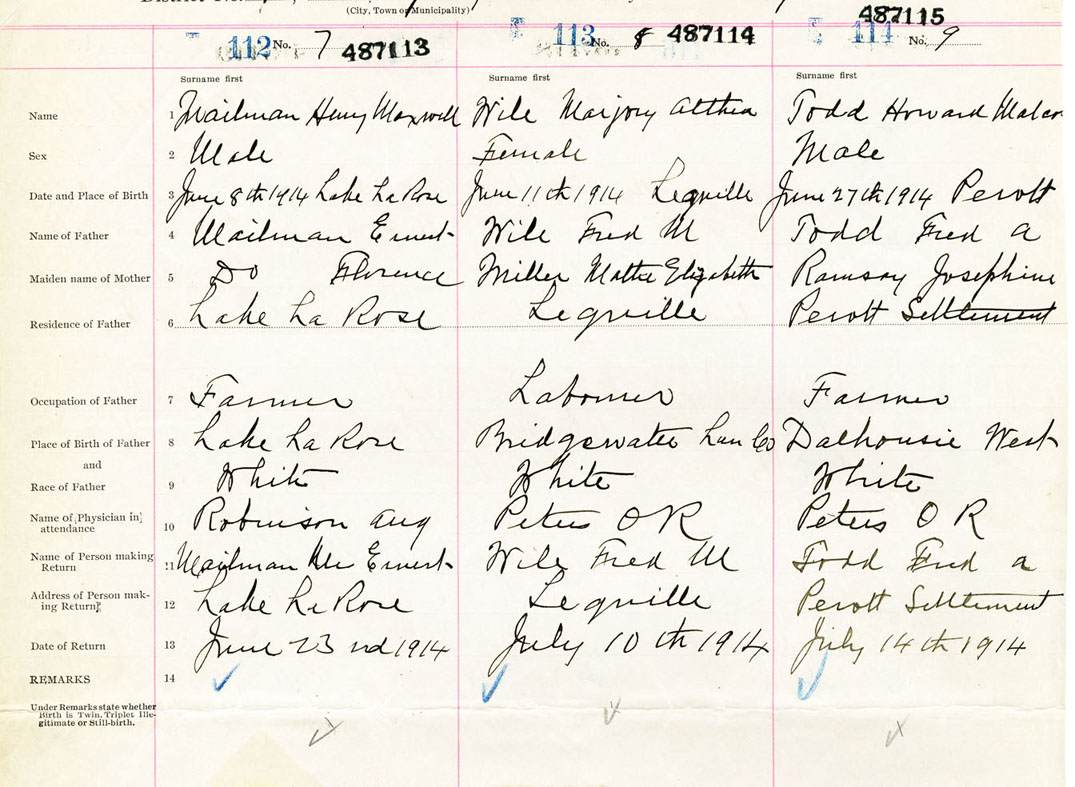 (City, Town or Municipality)
112 No. 7 487113 113 No. 8 487114 114 No. 9 487115
Surname first Surname first Surname first
Name 1 Mailman Henry Maxwell Wile Marjory Althea Todd Howard Malco
Sex 2 Male Female Male
Date and Place of Birth 3 June 8th 1914 Lake La Rose June 11th 1914 Leqville June 27th 1914 Perott
Name of Father 4 Mailman Ernest Wile Fred M Todd Fred A
Maiden name of Mother 5 Do Florence Miller Elizabeth Ramsay Josephine
Residence of Father 6 Lake La Rose Leqville Perott Settlement
Occupation of Father 7 Farmer Labourer Farmer
Place of Birth of Father 8 Lake La Rose Bridgewater Lun Co Dalhousie West
and
Race of Father 9 White White White
Name of Physician in attendance 10 Robinson Aug Peters O R Peters O R
Name of Person making Return 11 Mailman Mr Ernest Wile Fred M Todd Fred A
Address of Person making Return 12 Lake La Rose Leqville Perott Settlement
Date of Return 13 June 23nd 1914 July 10th 1914 July 14th 1914
REMARKS 14
Under Remarks state whether
Birth is Twin, Triplet Ille-
gitimate or Still-birth.